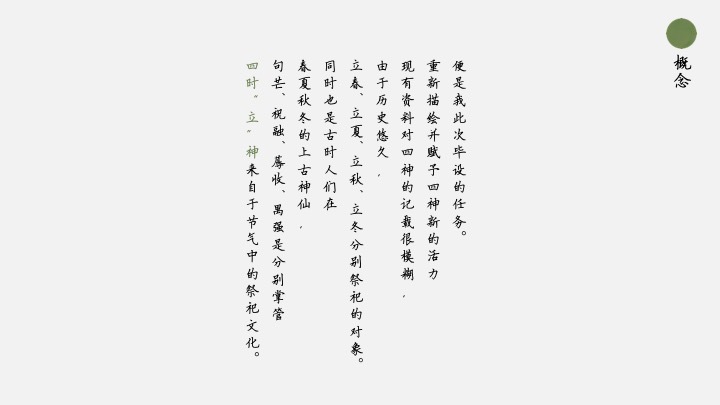 概念
四时“立”神来自于节气中的祭祀文化。
句芒、祝融、蓐收、禺强是分别掌管
春夏秋冬的上古神仙,
同时也是古时人们在
立春、立夏、立秋、立冬分别祭祀的对象。
由于历史悠久,
现有资料对四神的记载很模糊,
重新描绘并赋予四神新的活力
便是我此次毕设的任务。